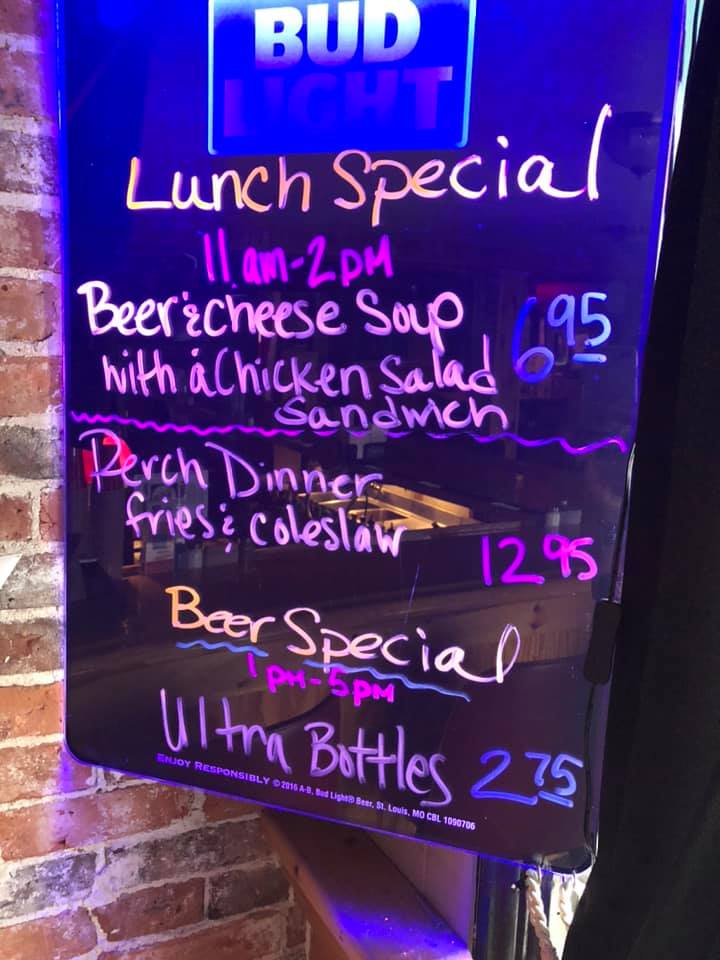 BUD
LIGHT
Lunch Special
11am-2pm
Beer & cheese Soup 6 95
with a Chicken Salad
Sandwich
Perch Dinner
fries & coleslaw 12.95
Beer Special
1pm-5pm
Ultra Bottles 2 75
ENJOY RESPONSIBLY © 2016 A-B, Bud Light® Beer, St. Louis, MO CBL 1090706